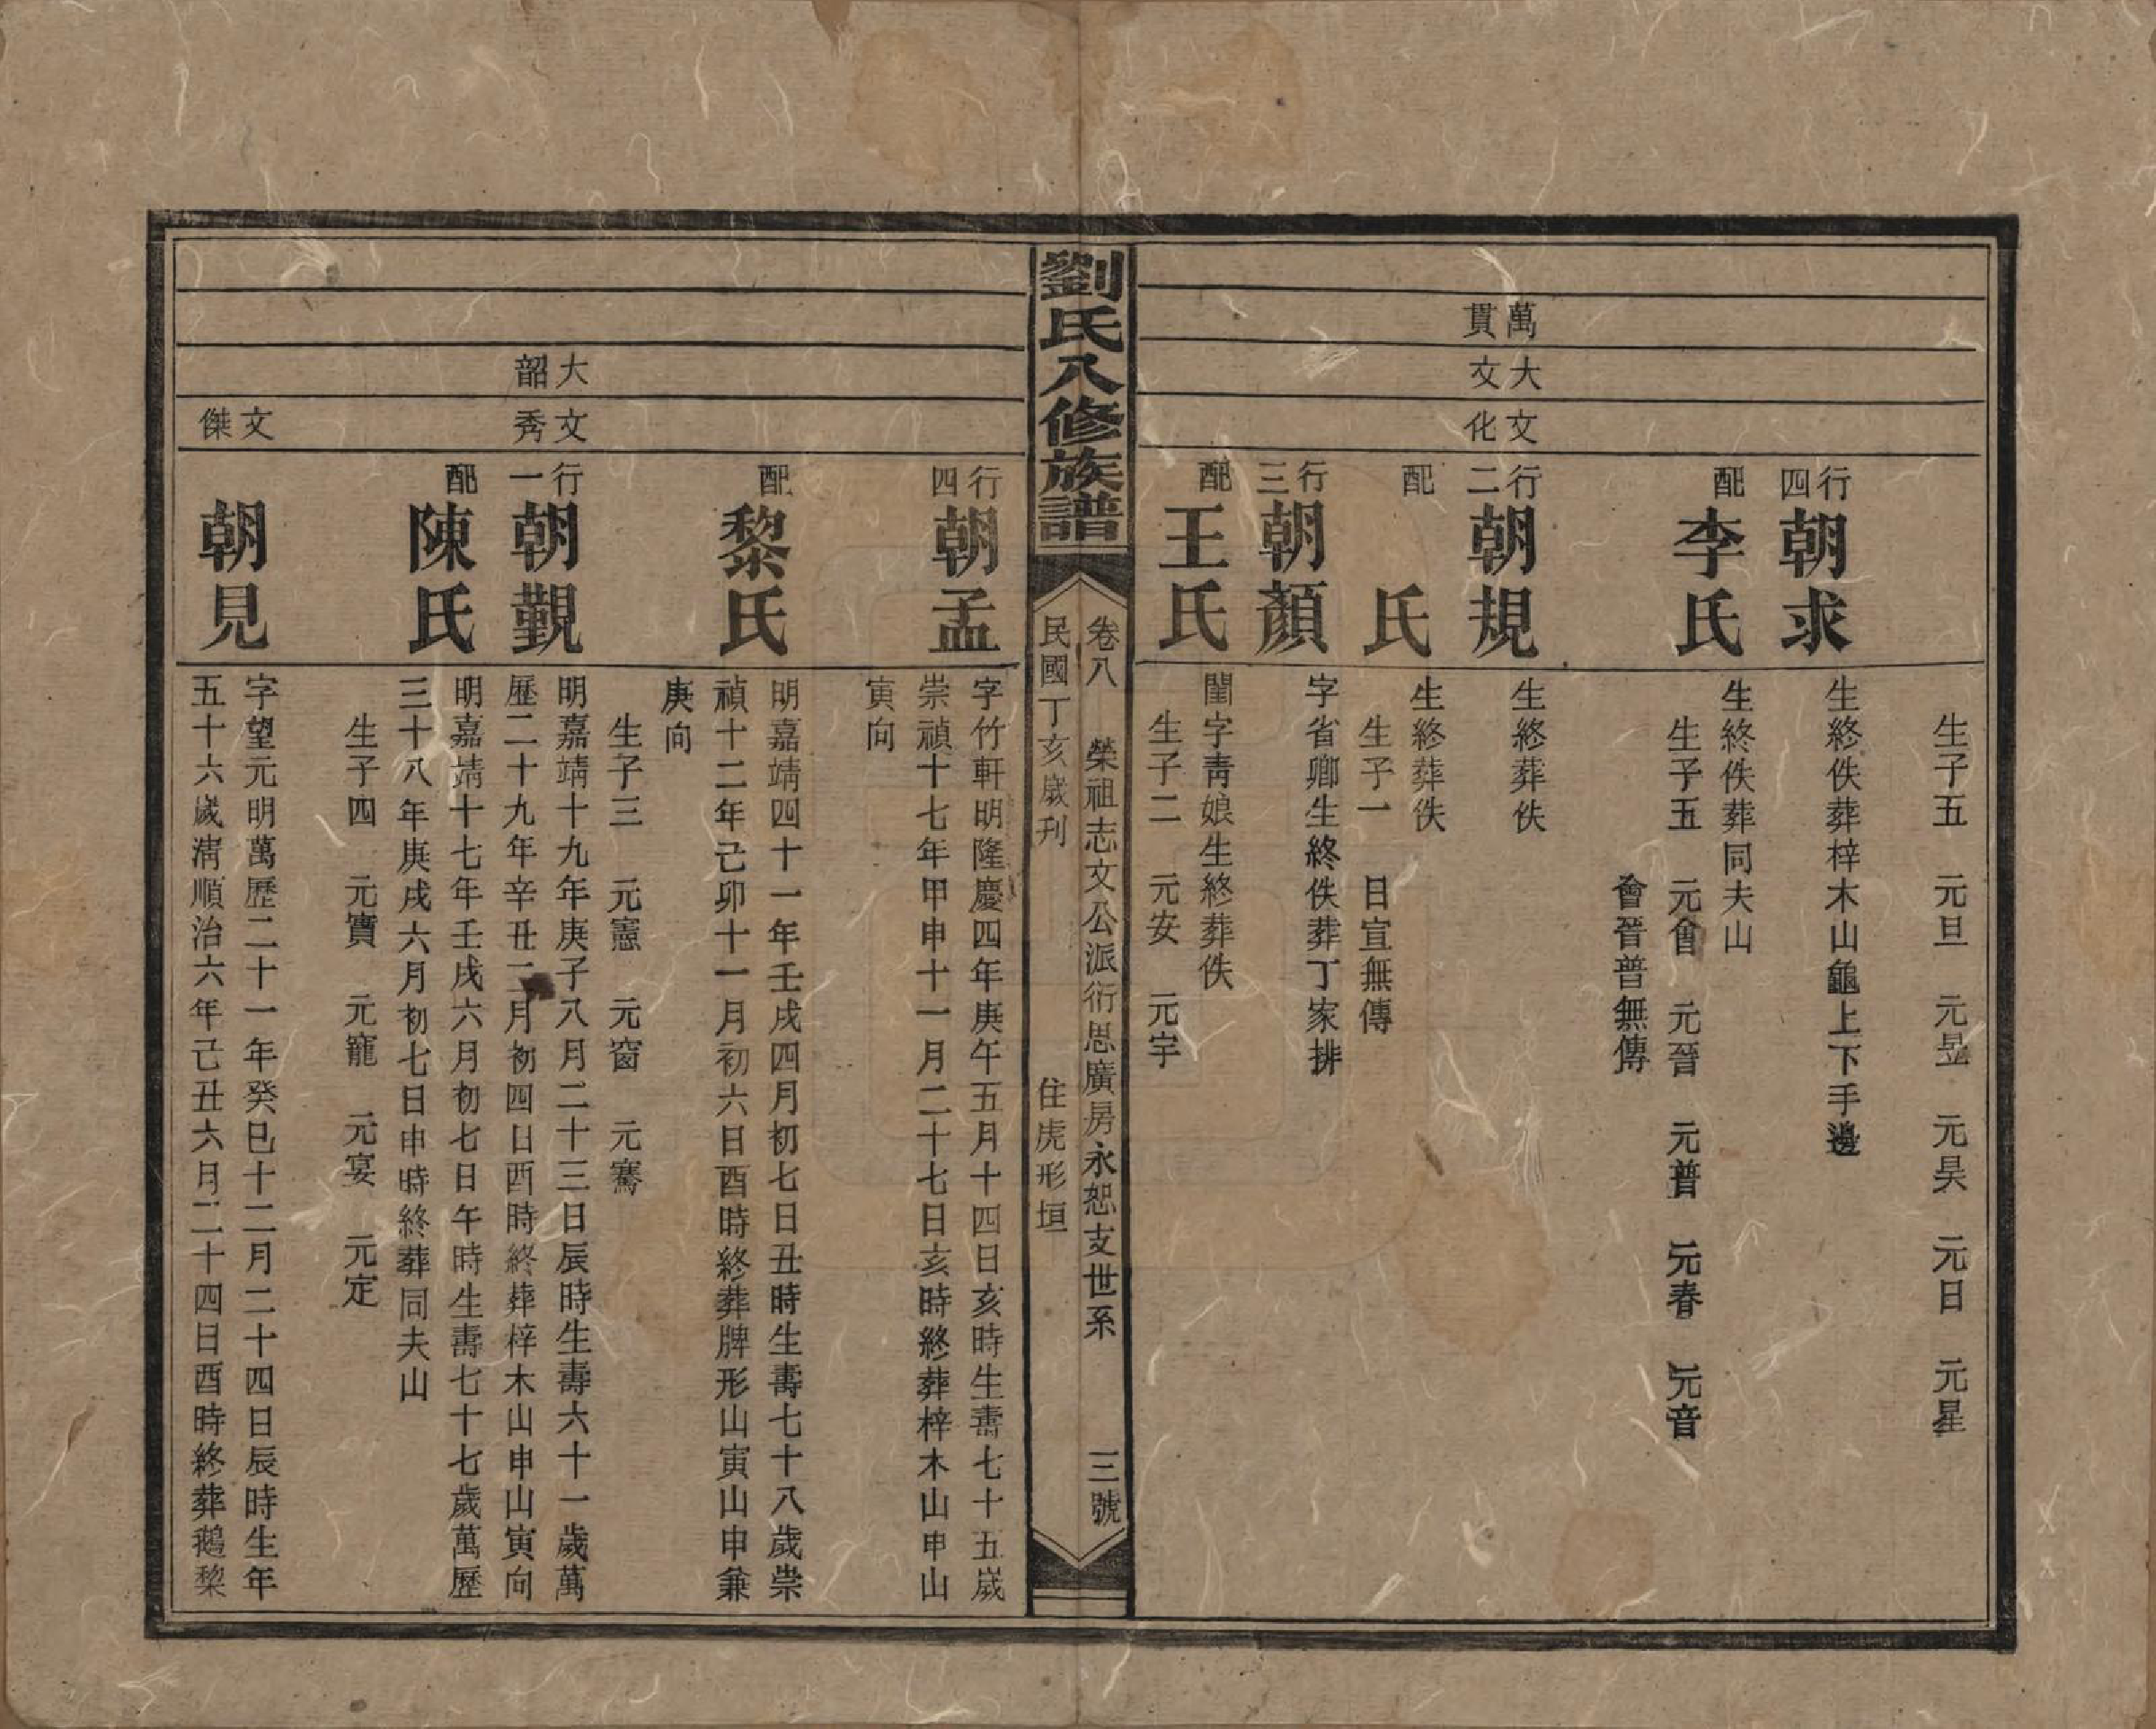 生子五　元旦　元昱　元昊　元日　元星
行四
朝求
生終佚葬梓木山龜上下手邊
配
李氏
生終佚葬同夫山
生子五　元會　元晉　元普　元春　元音
會晉普無傳
萬貫
大文
文化
行二
朝規
生終葬佚
配
氏
生終葬佚
生子一　日宣無傳
行三
朝顏
字省卿生終佚葬丁家排
配
王氏
閨字靑娘生終葬佚
生子二　元安　元宇
劉氏八修族譜
卷八　榮祖志文公派衍思廣房永恕支世系　三號
民國丁亥歲刊　住虎形垣
行四
朝孟
字竹軒明隆慶四年庚午五月十四日亥時生壽七十五歲
崇禎十七年甲申十一月二十七日亥時終葬梓木山申山
寅向
配
黎氏
明嘉靖四十一年壬戌四月初七日丑時生壽七十八歲崇
禎十二年己卯十一月初六日酉時終葬牌形山寅山申兼
庚向
生子三　元憲　元窗　元騫
大韶
文秀
行一
朝覲
明嘉靖十九年庚子八月二十三日辰時生壽六十一歲萬
歷二十九年辛丑二月初四日酉時終葬梓木山申山寅向
配
陳氏
明嘉靖十七年壬戌六月初七日午時生壽七十七歲萬歷
三十八年庚戌六月初七日申時終葬同夫山
生子四　元寶　元寵　元宴　元定
文傑
朝見
字望元明萬歷二十一年癸巳十二月二十四日辰時生年
五十六歲淸順治六年己丑六月二十四日酉時終葬鵝黎